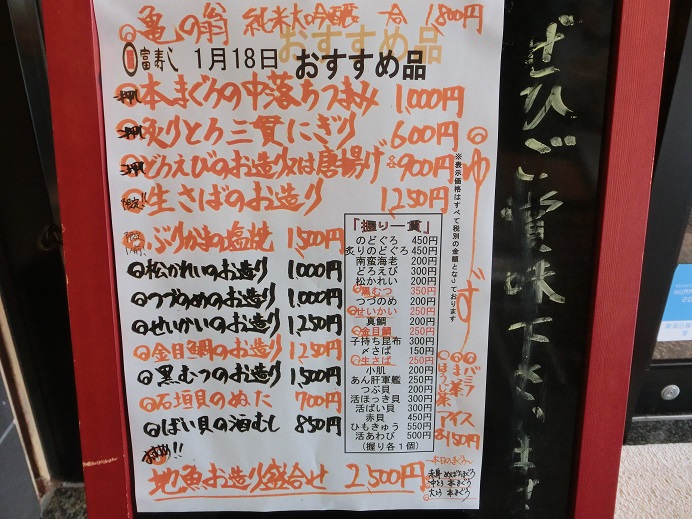 亀の翁 純米大吟醸 一合 1800円
おすすめ品
富寿し 1月18日 おすすめ品
本まぐろの中落ちつまみ 1,000円
炙りとろ三貫にぎり 600円
どろえびのお造り又は唐揚げ 各900円
生さばのお造り 1250円
ぶりかまの塩焼 1,500円
松かれいのお造り 1,000円
つづのめのお造り 1,000円
せいかいのお造り 1,250円
金目鯛のお造り 1250円
黒むつのお造り 1,500円
石垣貝のぬた 700円
ばい貝の酒むし 850円
地魚お造り盛合せ 2,500円
「握り一貫」
のどぐろ 450円
炙りのどぐろ 450円
南蛮海老 200円
どろえび 300円
松かれい 200円
黒むつ 350円
つづのめ 200円
せいかい 250円
真鯛 200円
金目鯛 250円
子持ち昆布 300円
〆さば 150円
生さば 250円
小肌 200円
あん肝軍艦 250円
つぶ貝 200円
活ほっき貝 300円
活ばい貝 300円
赤貝 450円
ひもきゅう 550円
活あわび 500円
(握り各1個)
※表示価格はすべて税別の金額となっております
ゆず
バニラ
まっ茶
ほうじ茶
アイス
各150円
本日のまぐろ
赤身 めばちまぐろ
中とろ 本まぐろ
大とろ 本まぐろ
ぜひご賞味下さいませ!